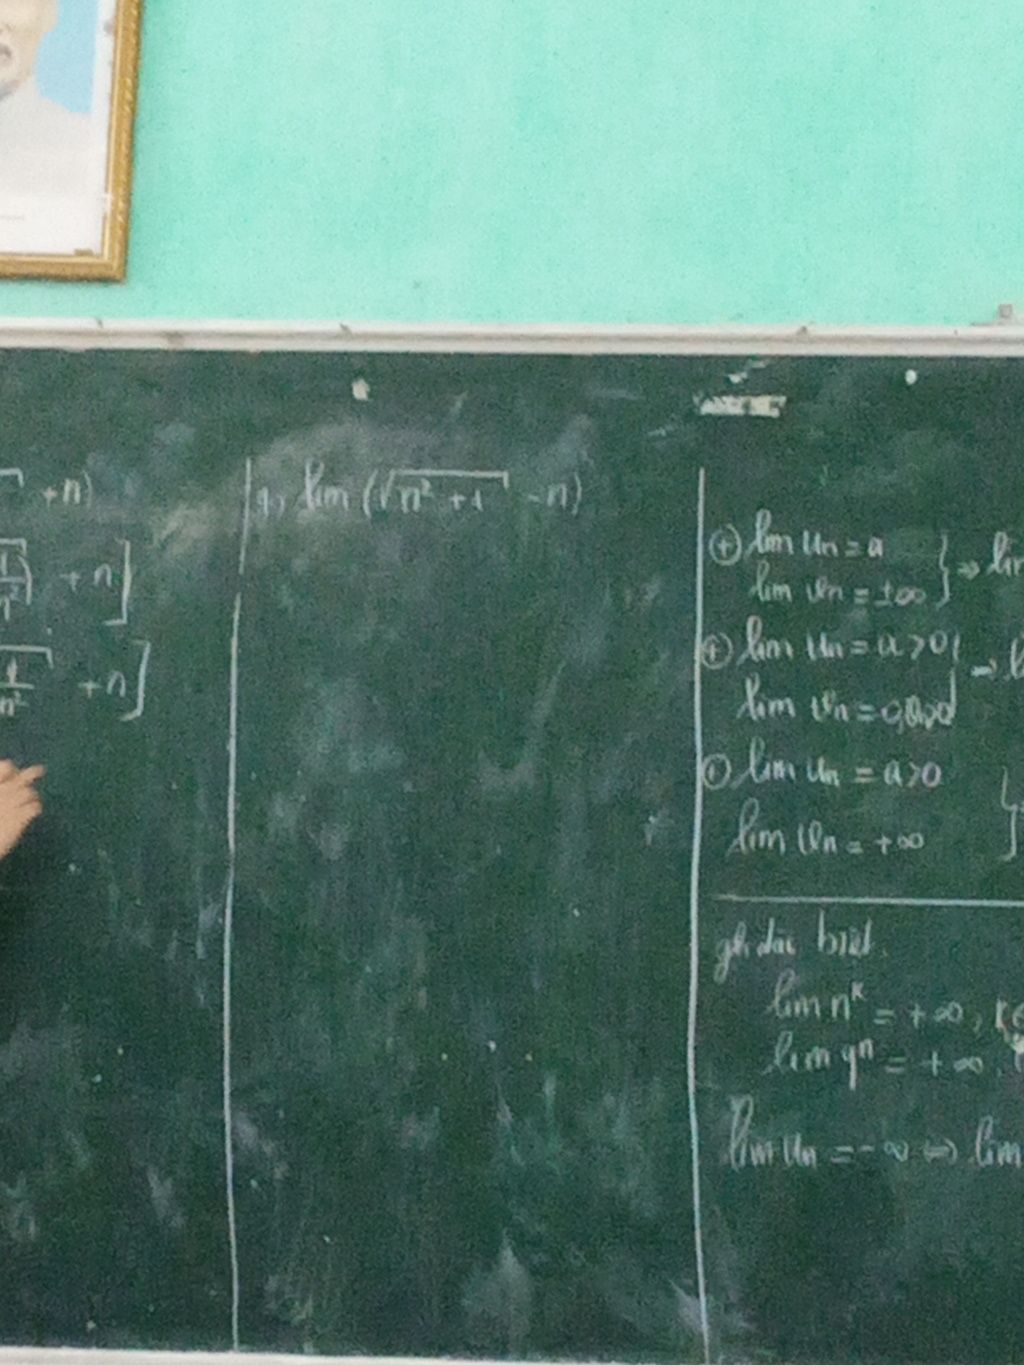 +n)
1/n² + n]
1/n² + n]
9, lim (√(n² + 1) - n)
⊕ lim un = a
lim vn = ±∞ } ⇒
⊕ lim un = a > 0
lim vn =
⊕ lim un = a > 0
lim vn = +∞ }
gh đặc biệt.
lim n^k = +∞,
lim q^n = +∞,
lim un = -∞ ⇔ lim